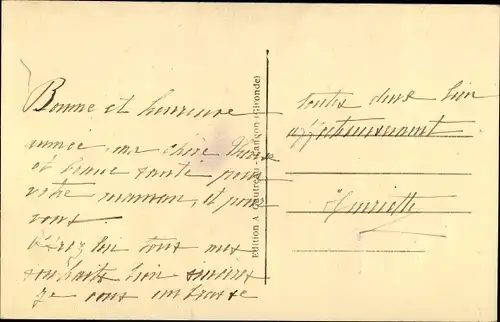 Bonne et heureuse
année, ma chère
et bonne santé pour
votre maman, et pour
vous.
tous mes
souhaits bien sincères
je vous embrasse
toutes deux bien
affectueusement
Henriette
Edition A. Langon (Gironde)